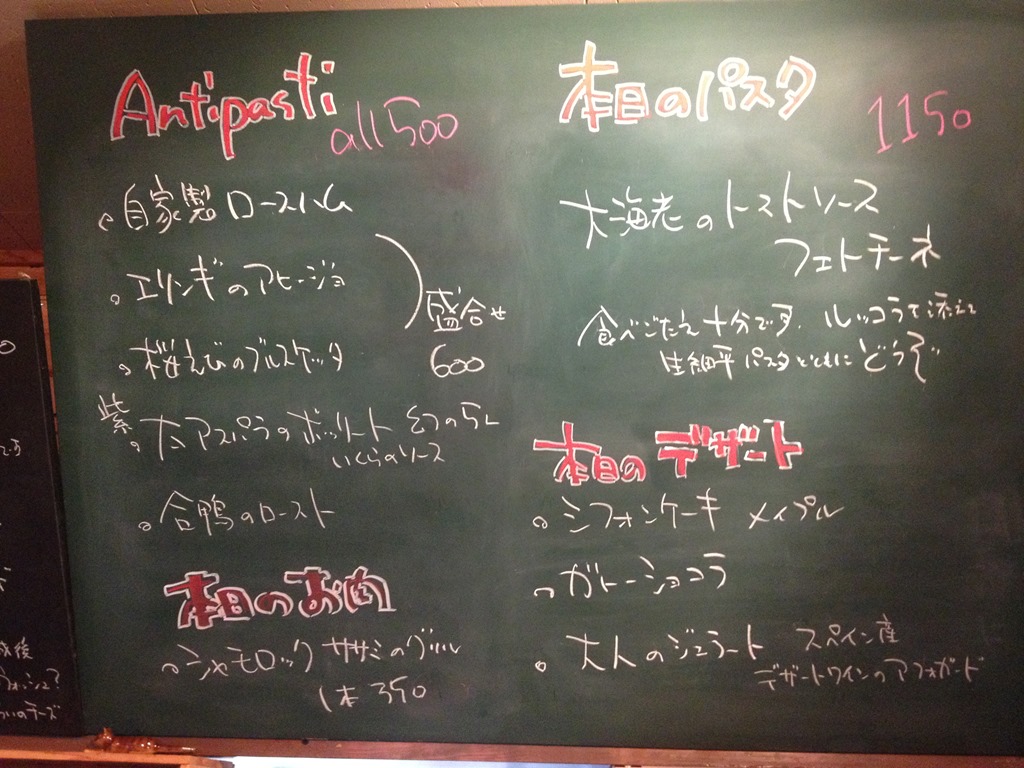 Antipasti all 500
自家製ロースハム
エリンギのアヒージョ
盛合せ
600
桜えびのブルスケッタ
紫
大アスパラのボッリート
いくらのソース
合鴨のロースト
本日のお肉
シャモロック ササミのグリル
1本 350
本日のパスタ 1150
大海老のトストソース
フェトチーネ
食べごたえ十分です。ルッコラで添えて
生細平パスタとともにどうぞ
本日のデザート
シフォンケーキ メイプル
ガトーショコラ
大人のジェラート スペイン産
デザートワインのアフォガード